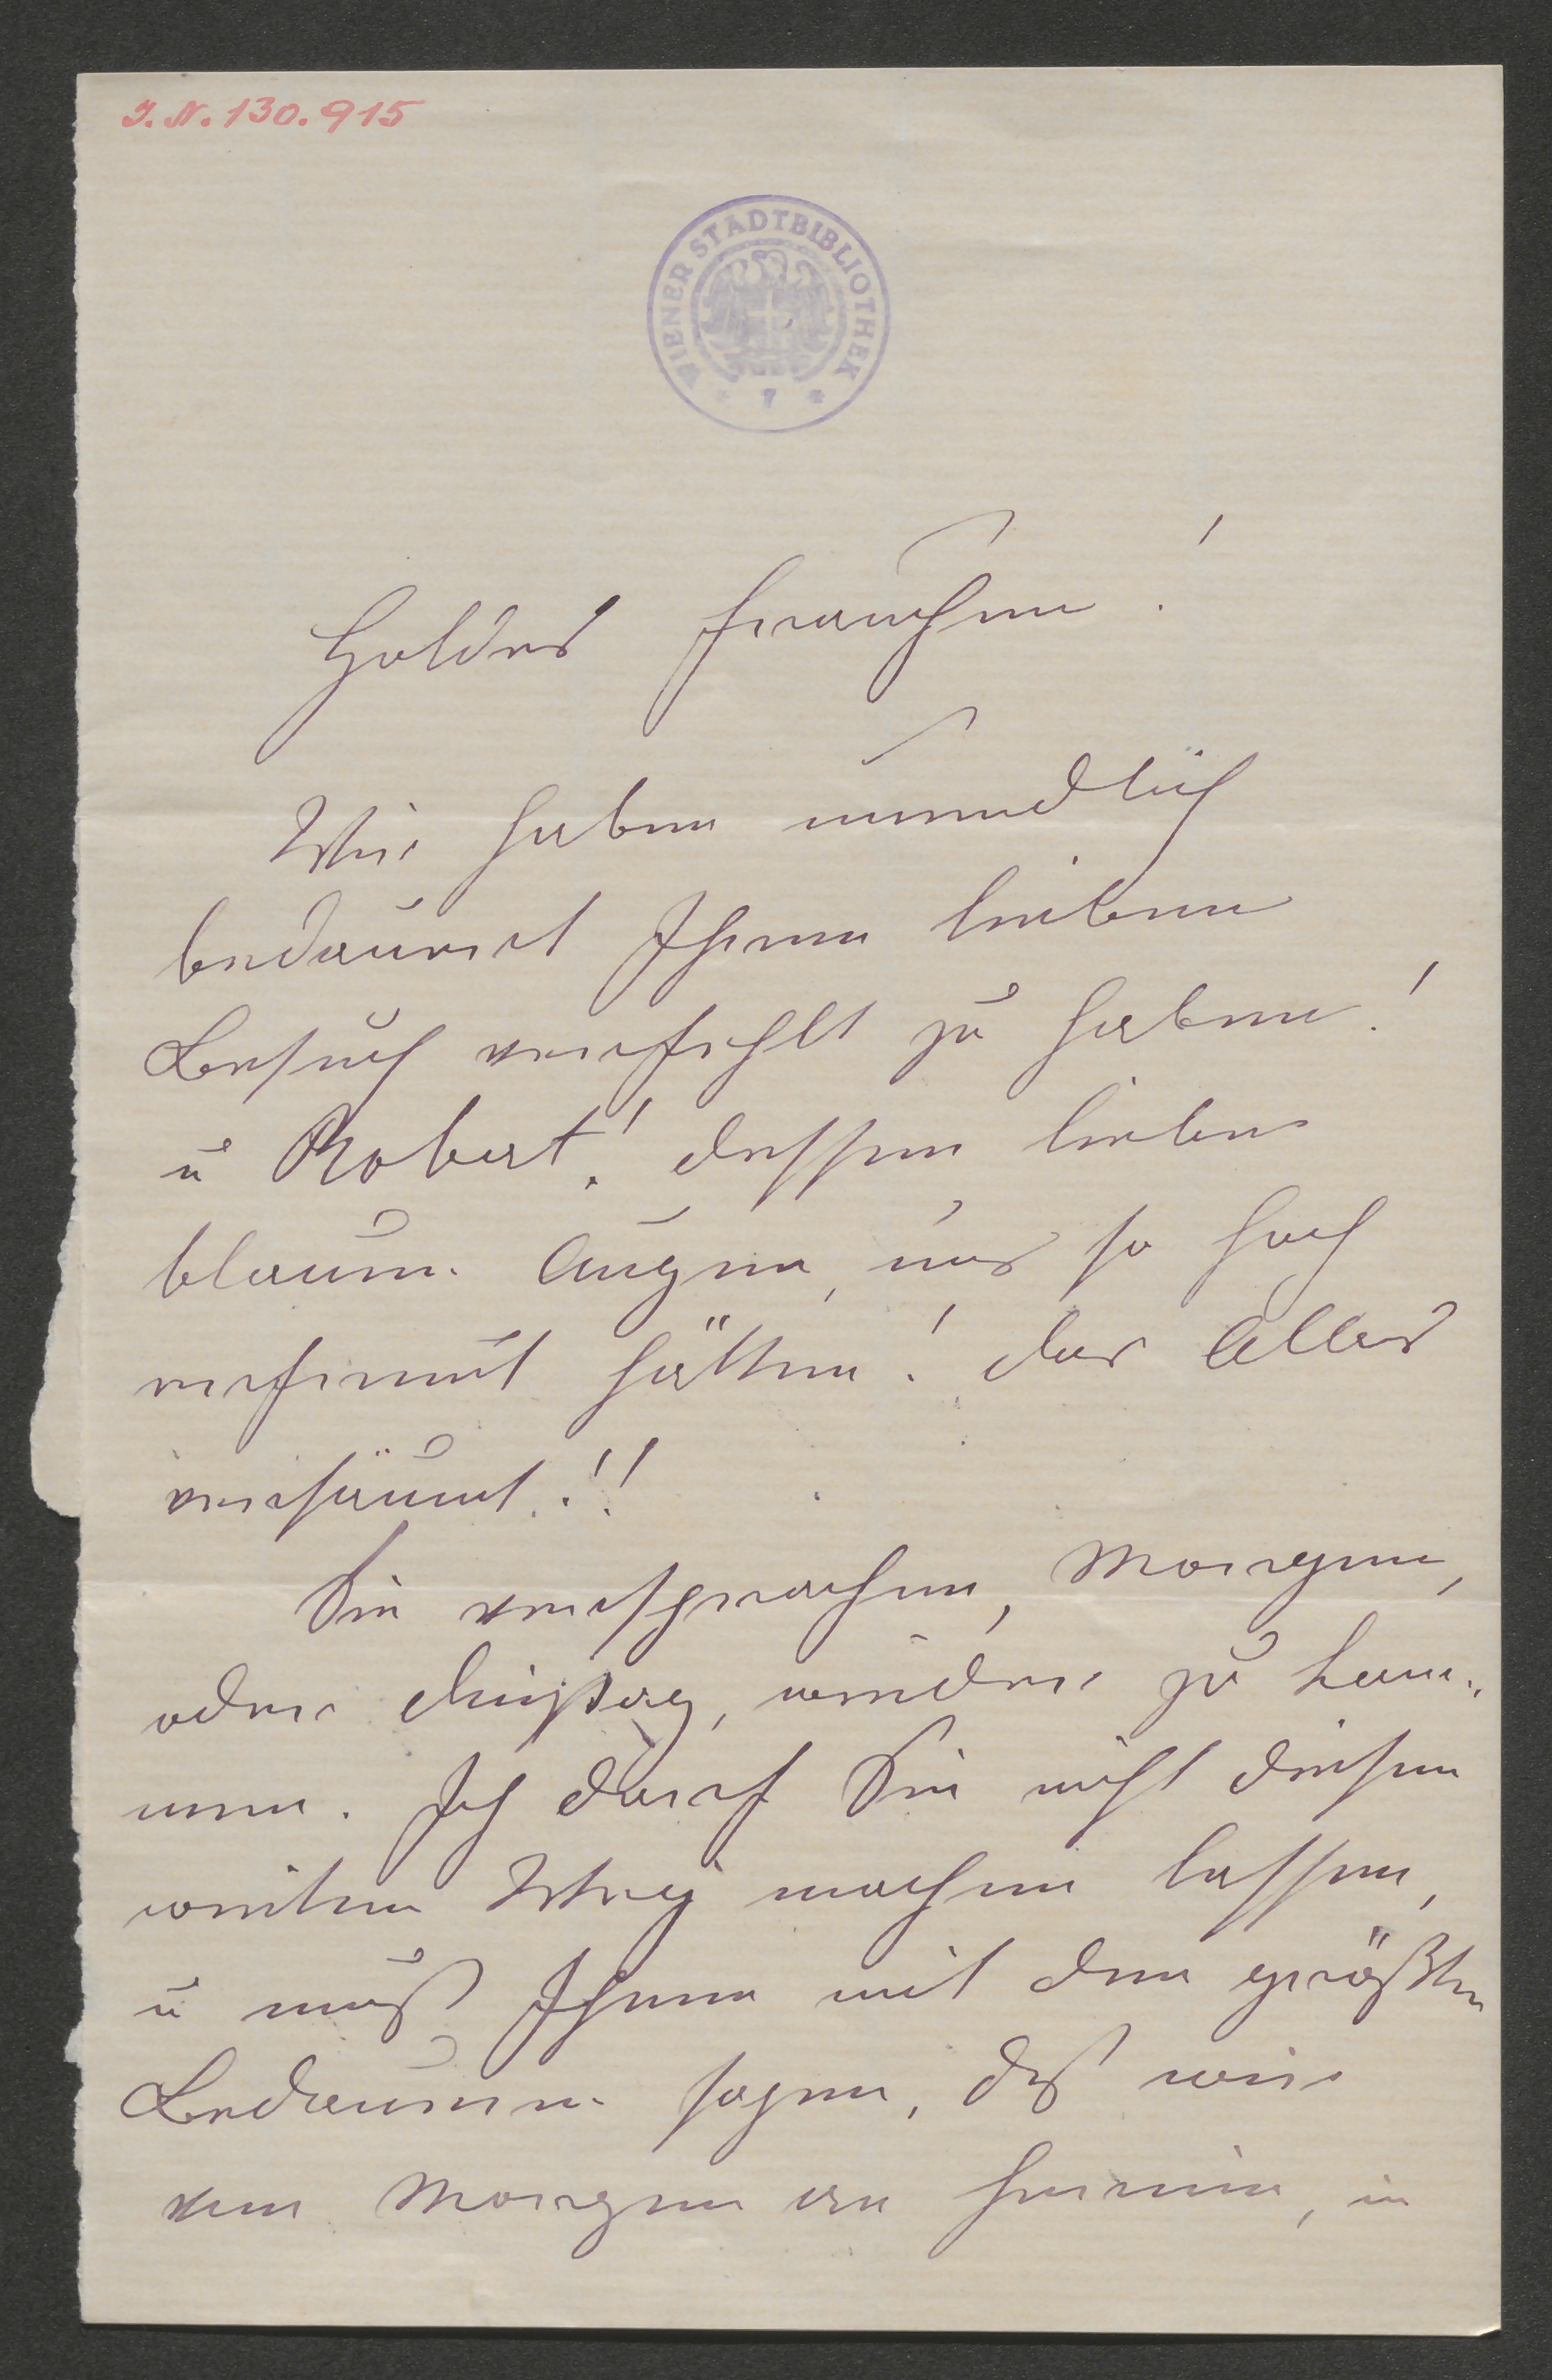 I.N. 130.915
WIENER STADTBIBLIOTHEK
* 7 *
Holdes Frauchen!
Wir haben unendlich
bedauert Ihren lieben
Besuch verfehlt zu haben!
u Robert! dessen liebe
blaue Augen, uns so hoch
erfreut hätten! das Alles
versäumt!!
Sie versprachen, Morgen,
oder Dinstag, wieder zu kom„
men. Ich darf Sie nicht diesen
weiten Weg machen lassen,
u muß Ihnen mit dem größten
Bedauern sagen, dß wir
von Morgen an Ferien, in